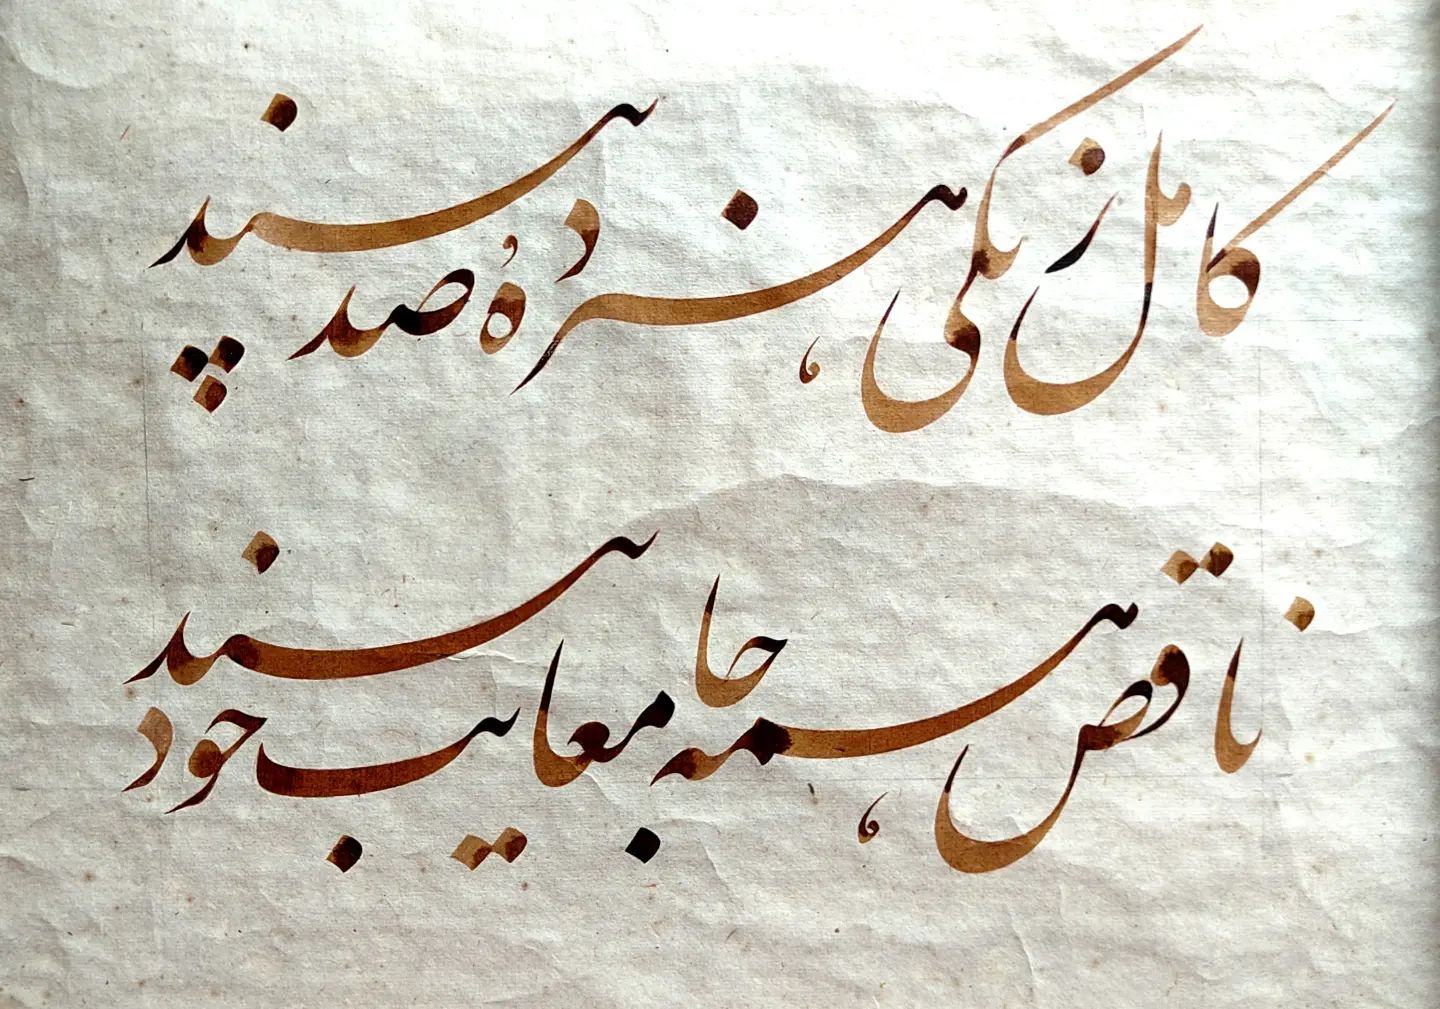 کامل ز یکی هنر دهُ صد بیند
ناقص همه جا معایب خود بیند